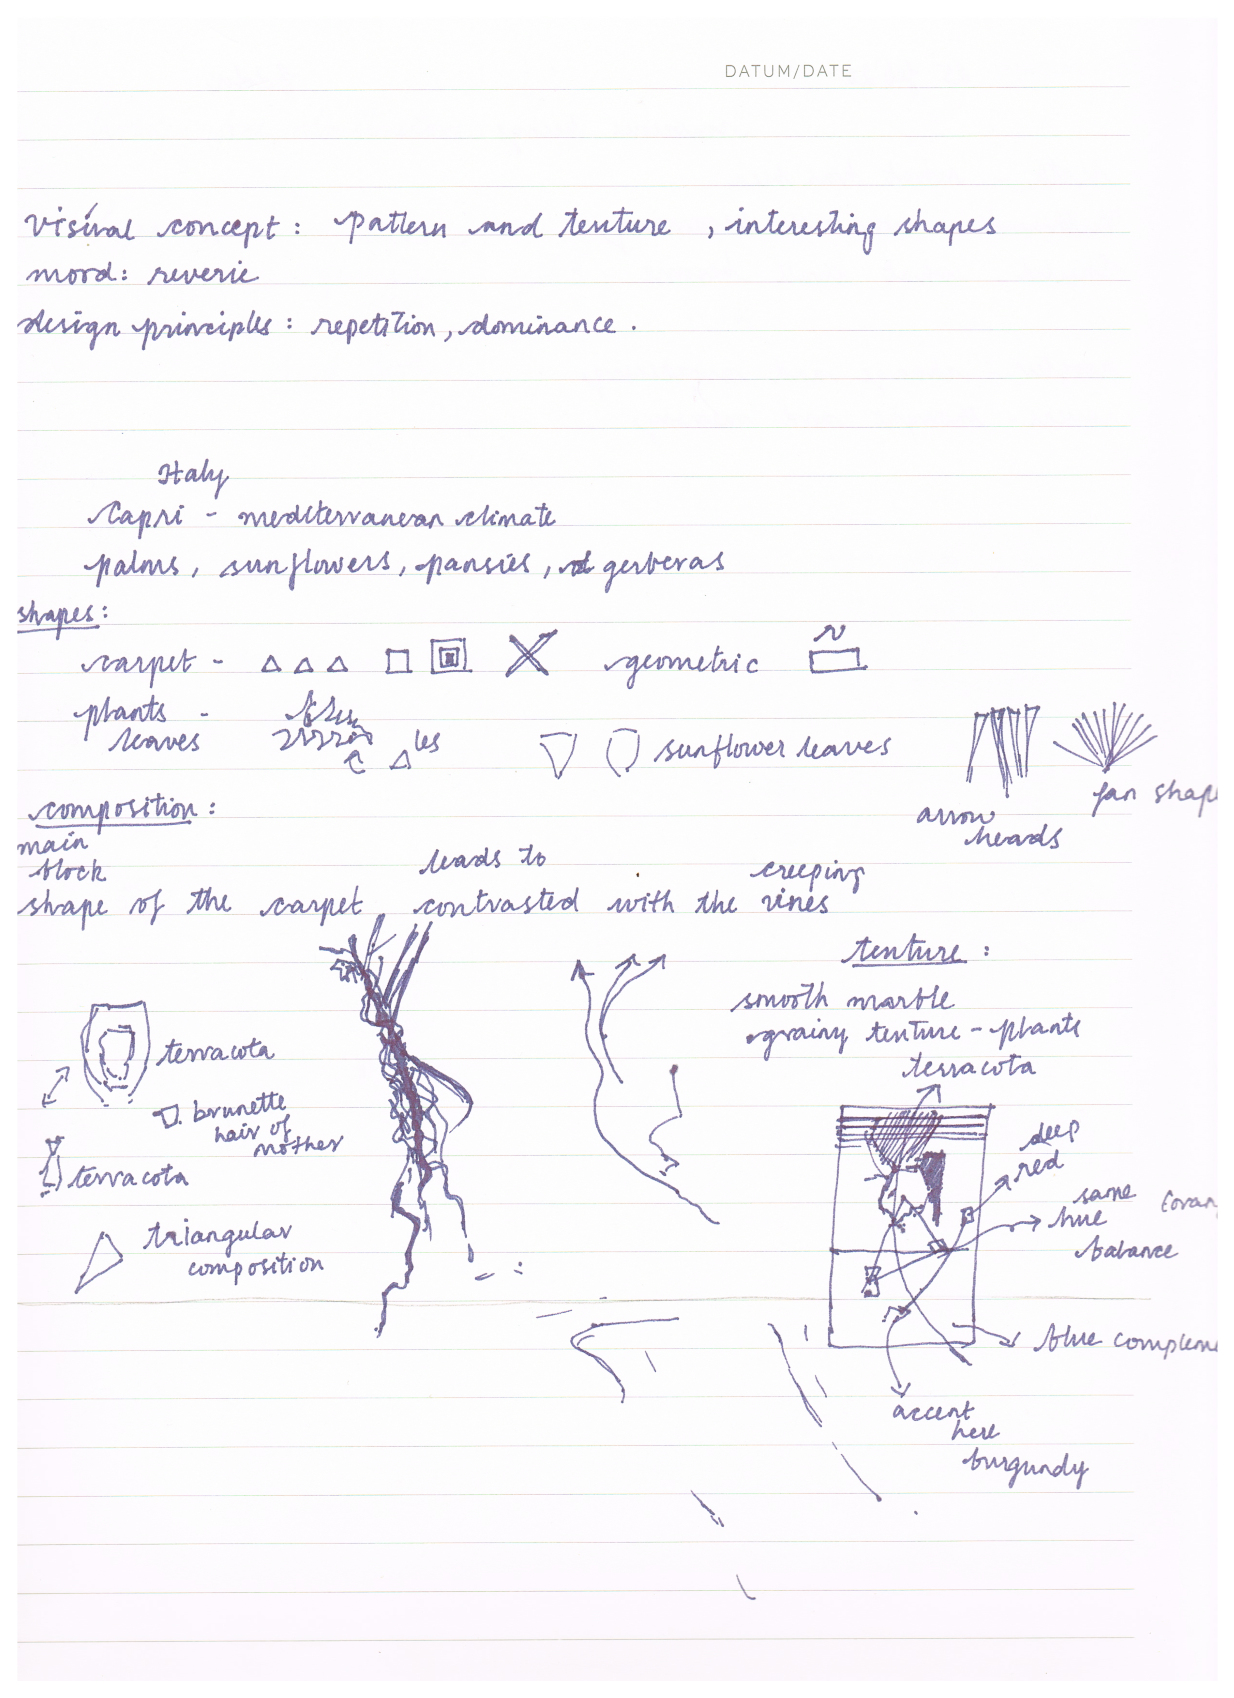 DATUM/DATE
visual concept : pattern and texture , interesting shapes
mood : reverie
design principles : repetition , dominance .
Italy
Capri - mediterranean climate
palms , sunflowers , pansies , gerberas
shapes :
carpet - geometric
plants -
leaves
les
sunflower leaves
arrow
heads
fan shap
composition :
main
block
leads to
creeping
shape of the carpet contrasted with the vines
texture :
smooth marble
grainy texture - plants
terracota
terracota
brunette
hair of
mother
terracota
triangular
composition
deep
red
same
hue
balance
blue complem
accent
here
burgundy